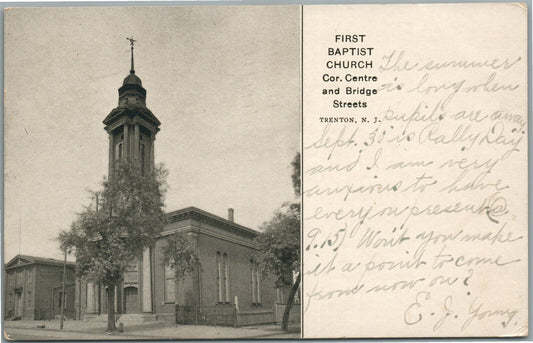 FIRST
BAPTIST
CHURCH
Cor. Centre
and Bridge
Streets
TRENTON, N. J.
The summer
is long when
pupils are away
Sept. 30 is Rally Day
and I am very
anxious to have
everyone present @
9.15) Won't you make
it a point to come
from now on?
E. J. Young.